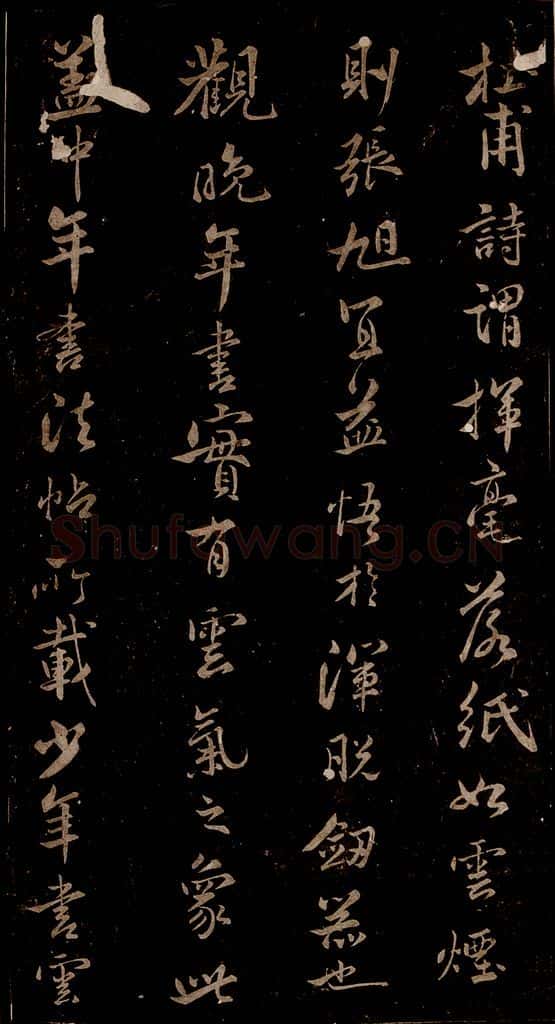 杜甫詩謂揮毫落紙如雲煙
則張旭冝益悟於渾脫劒器也
觀晚年書實有雲氣之象此
蓋中年書法帖所載少年書雲
Shufawang.CN